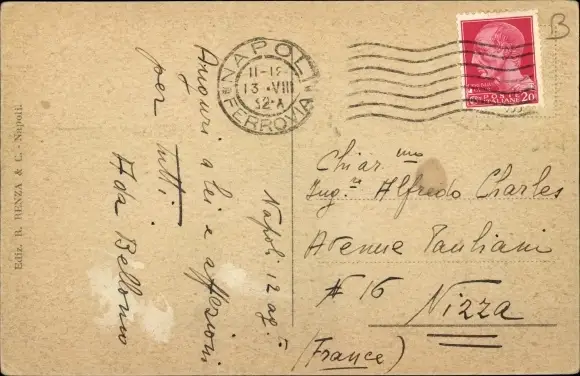 B
NAPOLI
FERROVIA
13 · VIII
32 · A
POSTE
ITALIANE 20
Ediz. B. RENZA & C. - Napoli
Napoli 12 ag.
Auguri a lei e affezioni
per tutti
Ada Bellomo
Chiar.mo
Ing.re Alfredo Charles
Avenue Pauliani
# 16
Nizza
(France)